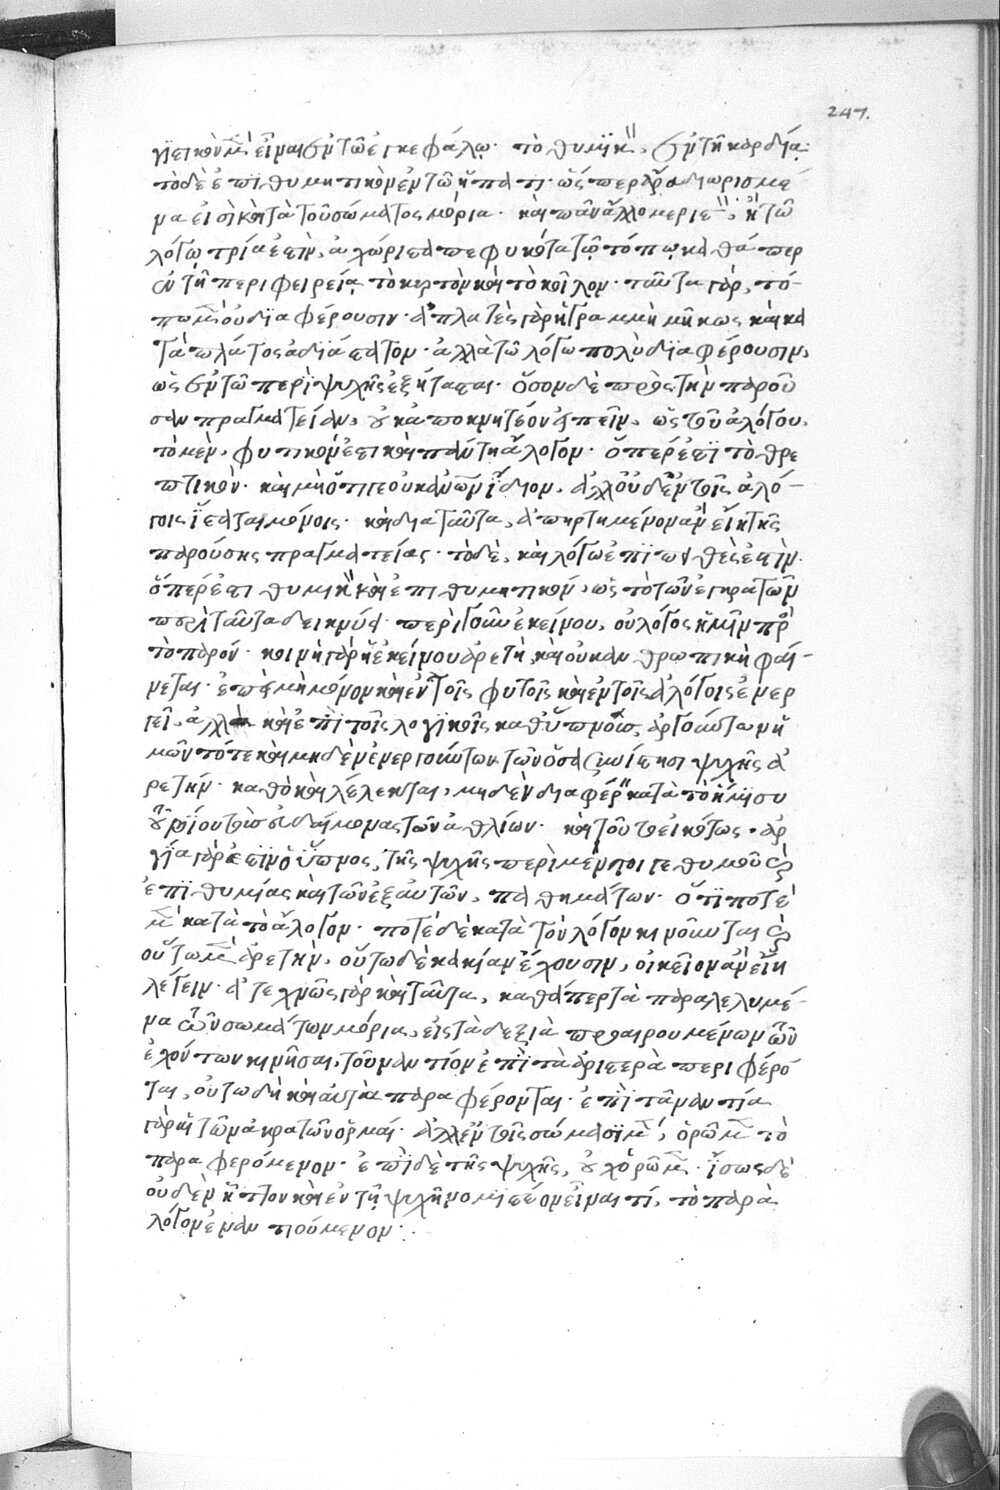 247.
γιστικὸν μὲν εἶναι ἐν τῶ ἐγκεφάλῳ· τὸ θυμικὸν, ἐν τῇ καρδίᾳ·
τὸ δὲ ἐπιθυμητικὸν ἐν τῶ ἥπατι· ὥσπερ διωρισμέ
να εἰσὶ καὶ τὰ τοῦ σώματος μόρια· καὶ πᾶν ἄλλο μεριστόν· ἢ τῶ
λόγῳ τρία ἐστὶν, ἀχώριστα πεφυκότα τῶ τόπῳ καθάπερ
ἐν τῇ περιφερείᾳ τὸ κυρτὸν καὶ τὸ κοῖλον· ταῦτα γὰρ, τό-
πω μὲν οὐ διαφέρουσιν· ἀπλατὲς γὰρ ἡ γραμμὴ μῆκος καὶ κα
τὰ πλάτος ἀδιάστατον· ἀλλὰ τῶ λόγω πολὺ διαφέρουσιν,
ὡς ἐν τῶ περὶ ψυχῆς ἐξήτασται· ὅσον δὲ πρὸς τὴν παροῦ
σαν πραγματείαν, οὐκ ἀποκνητέον εἰπεῖν, ὡς τοῦ ἀλόγου,
τὸ μὲν, φυτικόν ἐστι καὶ πάντη ἄλογον· ὅπερ ἐστὶ τὸ θρε
πτικὸν· καὶ μὴ ὅτι γε οὐκ ἀνῶν ἴδιον, ἀλλ' οὐδ' ἐν τοῖς ἀλό-
γοις ἱστάμενον· καὶ διὰ ταῦτα, ἀπηρτημένον ἂν εἴη τῆς
παρούσης πραγματείας· τὸ δὲ, καὶ λόγω ἐπιπειθές ἐστὶν·
ὅπερ ἐστὶ θυμικὸν καὶ ἐπιθυμητικόν, ὡς τὸ τῶν ἐγκρατῶν
ταῦτα δείκνυσι· περὶ γοῦν ἐκείνου, οὐ λόγος ἡμῖν πρὸς
τὸ παρόν· κοινὴ γὰρ ἡ ἐκείνου ἀρετὴ, καὶ οὐκ ἀνθρωπικὴ φαί-
νεται· ἐπεὶ μὴ μόνον καὶ ἐν τοῖς φυτοῖς καὶ ἐν τοῖς ἀλόγοις ἐνερ
γεῖ, ἀλλὰ καὶ ἐπὶ τοῖς λογικοῖς καθ' ὕπνους, ἀργούντων ἡ
μῶν τότε καὶ μηδὲν ἐνεργούντων τῶν ὅσα συνίστησι ψυχῆς ἀ
ρετήν· καθὸ καὶ λέλεκται, μηδὲν διαφέρειν κατὰ τὸ ἥμισυ
τοῦ βίου τοὺς εὐδαίμονας τῶν ἀθλίων· καὶ τοῦτο εἰκότως· ἀρ
γία γάρ ἐστιν ὁ ὕπνος, τῆς ψυχῆς περὶ μέν τοι γε θυμοῦ καὶ
ἐπιθυμίας καὶ τῶν ἐξ αὐτῶν, παθημάτων· ὅτι ποτὲ
μὲν κατὰ τὸ ἄλογον· ποτὲ δὲ κατὰ τὸν λόγον κινοῦνται καὶ
οὕτω μὲν ἀρετὴν, οὕτω δὲ κακίαν ἔχουσιν, οἰκεῖον ἂν εἴη
λέγειν· ἀτεχνῶς γὰρ καὶ ταῦτα, καθάπερ τὰ παραλελυμέ-
να τῶν σωμάτων μόρια, εἰς τὰ δεξιὰ προαιρουμένων τῶν
ἐχόντων κινῆσαι, τοὐναντίον ἐπὶ τὰ ἀριστερὰ περιφέρε
ται, οὕτω δὴ καὶ αὐτὰ παραφέρονται· ἐπὶ τἀναντία
γὰρ αἱ τῶν ἀκρατῶν ὁρμαί· ἀλλ' ἐν τοῖς σώμασι μὲν, ὁρῶμεν τὸ
παραφερόμενον· ἐπὶ δὲ τῆς ψυχῆς, οὐχ ὁρῶμεν· ἴσως δὲ
οὐδὲν ἧττον καὶ ἐν τῇ ψυχῇ νομιστέον εἶναι τί, τὸ παρὰ
λόγον ἐναντιούμενον·